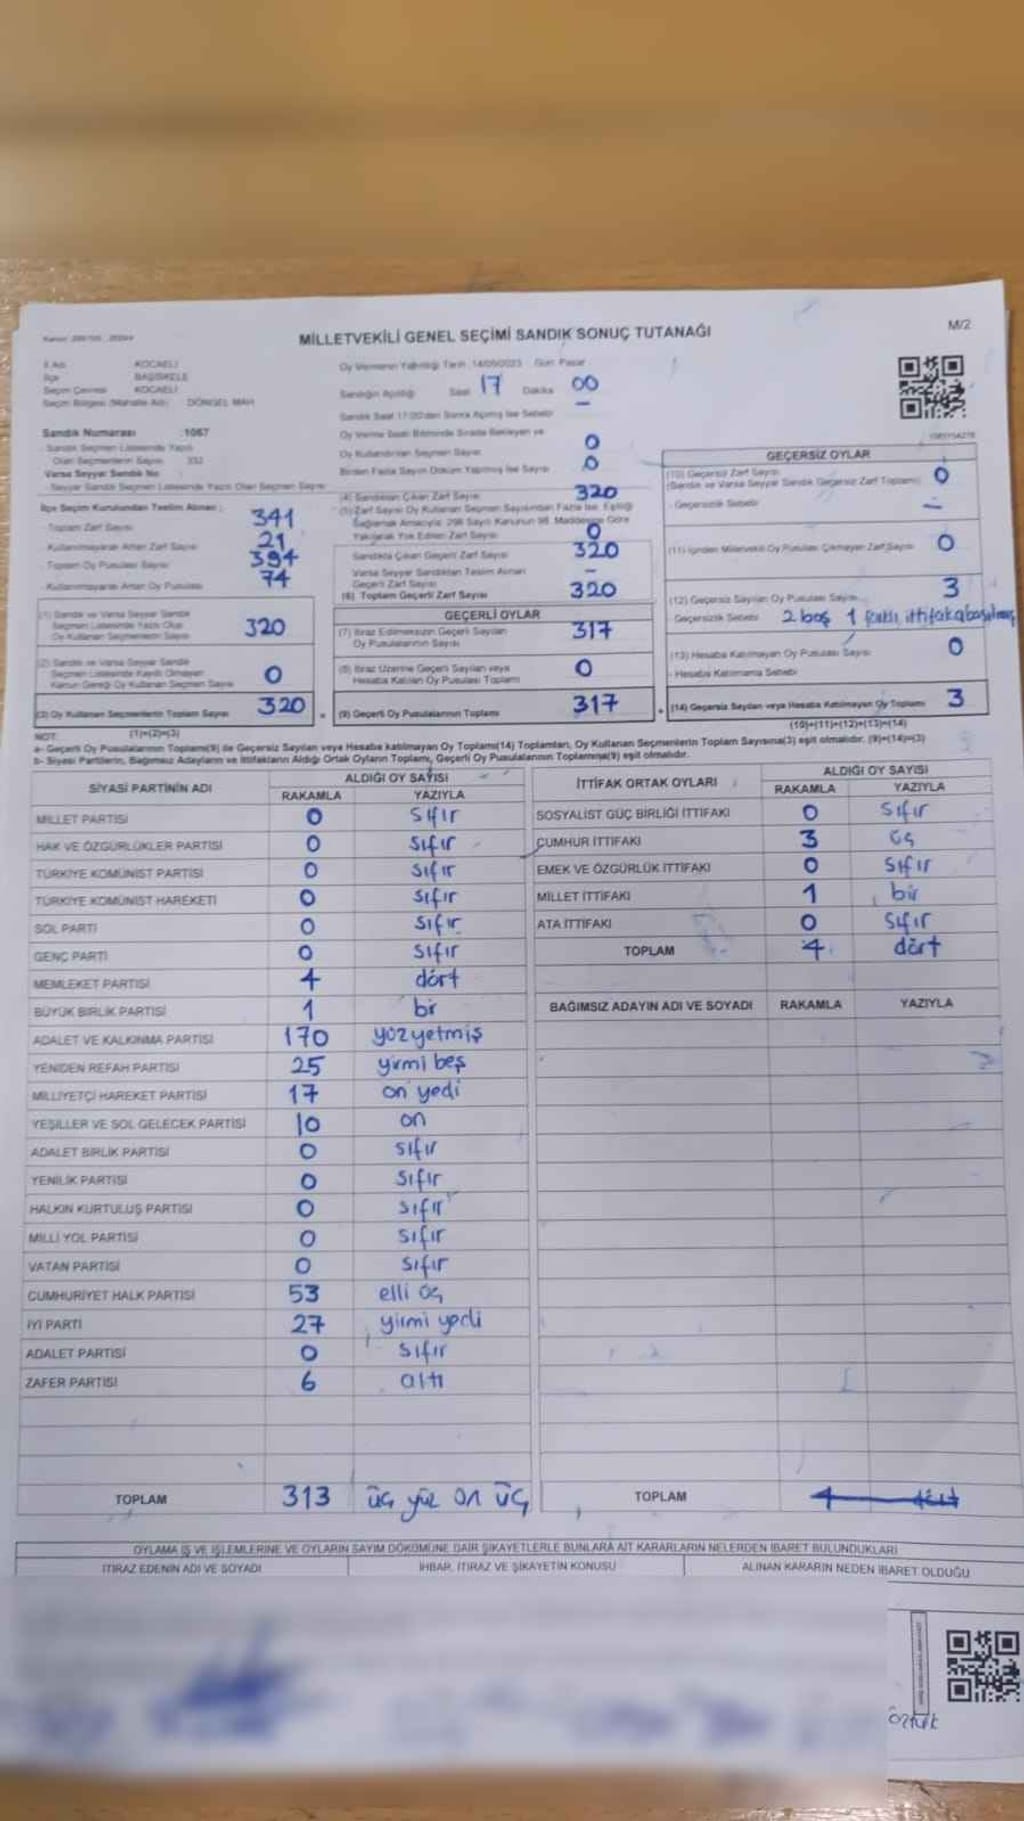 MİLLETVEKİLİ GENEL SEÇİMİ SANDIK SONUÇ TUTANAĞI
M/2
İl Adı KOCAELİ
İlçe BAŞİSKELE
Seçim Çevresi KOCAELİ
Seçim Bölgesi (Mahalle Adı) DÖNGEL MAH
Oy Vermenin Yapıldığı Tarih 14/05/2023 Gün Pazar
Sandığın Açıldığı Saat 17 Dakika 00
Sandık Saat 17:00'den Sonra Açılmış İse Sebebi –
Sandık Numarası :1067
Sandık Seçmen Listesinde Yazılı
Olan Seçmenlerin Sayısı 332
Varsa Seyyar Sandık No
Seyyar Sandık Seçmen Listesinde Yazılı Olan Seçmen Sayısı
Oy Verme Saati Bitiminde Sırada Bekleyen ve
Oy Kullandırılan Seçmen Sayısı 0
Birden Fazla Sayım Döküm Yapılmış İse Sayısı 0
İlçe Seçim Kurulundan Teslim Alınan :
Toplam Zarf Sayısı 341
Kullanılmayarak Artan Zarf Sayısı 21
Toplam Oy Pusulası Sayısı 394
Kullanılmayarak Artan Oy Pusulası 74
(1) Sandık ve Varsa Seyyar Sandık
Seçmen Listesinde Yazılı Olup
Oy Kullanan Seçmenlerin Sayısı 320
(2) Sandık ve Varsa Seyyar Sandık
Seçmen Listesinde Kayıtlı Olmayan
Kanun Gereği Oy Kullanan Seçmen Sayısı 0
(3) Oy Kullanan Seçmenlerin Toplam Sayısı 320
(1)+(2)=(3)
(4) Sandıktan Çıkan Zarf Sayısı 320
(5) Zarf Sayısı Oy Kullanan Seçmen Sayısından Fazla İse, Eşitliği
Sağlamak Amacıyla 298 Sayılı Kanunun 98. Maddesine Göre
Yakılarak Yok Edilen Zarf Sayısı 0
Sandıkta Çıkan Geçerli Zarf Sayısı 320
Varsa Seyyar Sandıktan Teslim Alınan
Geçerli Zarf Sayısı –
(6) Toplam Geçerli Zarf Sayısı 320
GEÇERLİ OYLAR
(7) İtiraz Edilmeksizin Geçerli Sayılan
Oy Pusulalarının Sayısı 317
(8) İtiraz Üzerine Geçerli Sayılan veya
Hesaba Katılan Oy Pusulası Toplamı 0
(9) Geçerli Oy Pusulalarının Toplamı 317
GEÇERSİZ OYLAR
(10) Geçersiz Zarf Sayısı
(Sandık ve Varsa Seyyar Sandık Geçersiz Zarf Toplamı) 0
Geçersizlik Sebebi –
(11) İçinden Milletvekili Oy Pusulası Çıkmayan Zarf Sayısı 0
(12) Geçersiz Sayılan Oy Pusulası Sayısı 3
Geçersizlik Sebebi 2 boş 1 farklı ittifaka basılmış
(13) Hesaba Katılmayan Oy Pusulası Sayısı 0
- Hesaba Katılmama Sebebi
(14) Geçersiz Sayılan veya Hesaba Katılmayan Oy Toplamı 3
(10)+(11)+(12)+(13)=(14)
NOT:
a- Geçerli Oy Pusulalarının Toplamı(9) ile Geçersiz Sayılan veya Hesaba katılmayan Oy Toplamı(14) Toplamları, Oy Kullanan Seçmenlerin Toplam Sayısına(3) eşit olmalıdır. (9)+(14)=(3)
b- Siyasi Partilerin, Bağımsız Adayların ve İttifakların Aldığı Ortak Oyların Toplamı, Geçerli Oy Pusulalarının Toplamına(9) eşit olmalıdır.
SİYASİ PARTİNİN ADI ALDIĞI OY SAYISI
RAKAMLA YAZIYLA
MİLLET PARTİSİ 0 sıfır
HAK VE ÖZGÜRLÜKLER PARTİSİ 0 sıfır
TÜRKİYE KOMÜNİST PARTİSİ 0 sıfır
TÜRKİYE KOMÜNİST HAREKETİ 0 sıfır
SOL PARTİ 0 sıfır
GENÇ PARTİ 0 sıfır
MEMLEKET PARTİSİ 4 dört
BÜYÜK BİRLİK PARTİSİ 1 bir
ADALET VE KALKINMA PARTİSİ 170 yüzyetmiş
YENİDEN REFAH PARTİSİ 25 yirmi beş
MİLLİYETÇİ HAREKET PARTİSİ 17 on yedi
YEŞİLLER VE SOL GELECEK PARTİSİ 10 on
ADALET BİRLİK PARTİSİ 0 sıfır
YENİLİK PARTİSİ 0 sıfır
HALKIN KURTULUŞ PARTİSİ 0 sıfır
MİLLİ YOL PARTİSİ 0 sıfır
VATAN PARTİSİ 0 sıfır
CUMHURİYET HALK PARTİSİ 53 elli üç
İYİ PARTİ 27 yirmi yedi
ADALET PARTİSİ 0 sıfır
ZAFER PARTİSİ 6 altı
TOPLAM 313 üç yüz on üç
İTTİFAK ORTAK OYLARI ALDIĞI OY SAYISI
RAKAMLA YAZIYLA
SOSYALİST GÜÇ BİRLİĞİ İTTİFAKI 0 sıfır
CUMHUR İTTİFAKI 3 üç
EMEK VE ÖZGÜRLÜK İTTİFAKI 0 sıfır
MİLLET İTTİFAKI 1 bir
ATA İTTİFAKI 0 sıfır
TOPLAM 4 dört
BAĞIMSIZ ADAYIN ADI VE SOYADI RAKAMLA YAZIYLA
TOPLAM 4 dört
OYLAMA İŞ VE İŞLEMLERİNE VE OYLARIN SAYIM DÖKÜMÜNE DAİR ŞİKAYETLERLE BUNLARA AİT KARARLARIN NELERDEN İBARET BULUNDUKLARI
İTİRAZ EDENİN ADI VE SOYADI İHBAR, İTİRAZ VE ŞİKAYETİN KONUSU ALINAN KARARIN NEDEN İBARET OLDUĞU
öztürk